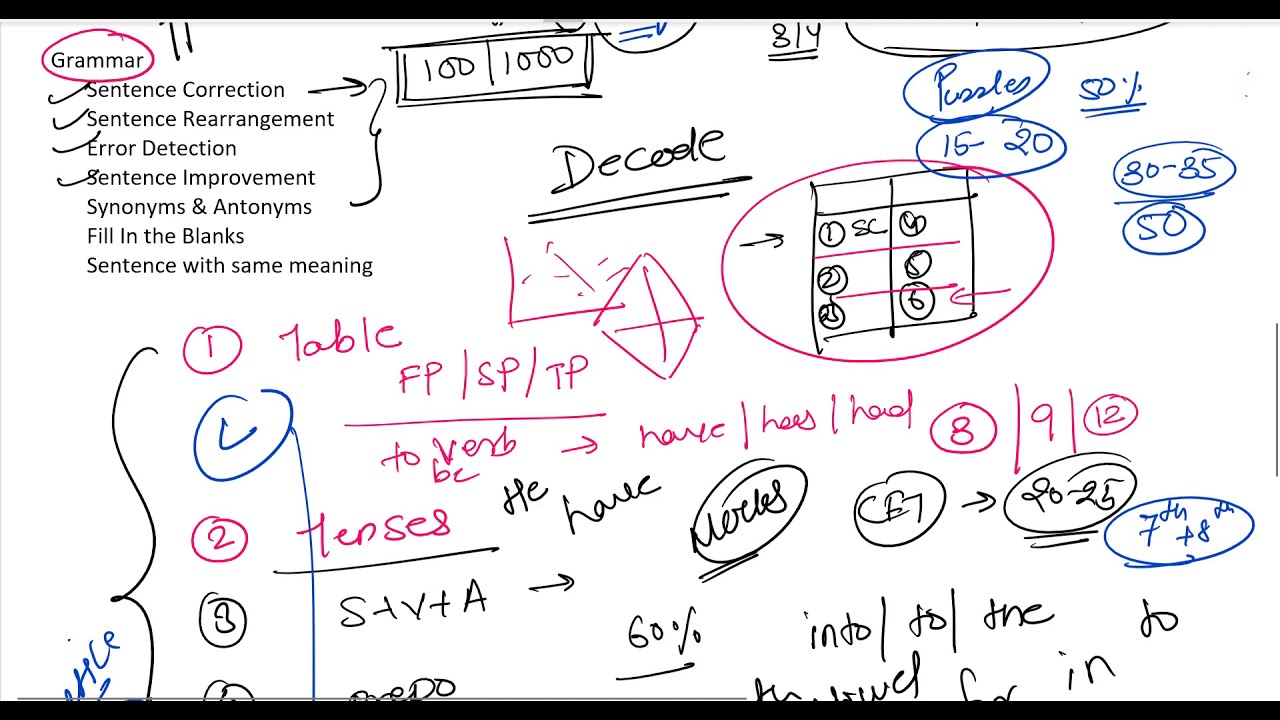 3/4
100 | 1000
Grammar
Sentence Correction
Sentence Rearrangement
Error Detection
Sentence Improvement
Synonyms & Antonyms
Fill In the Blanks
Sentence with same meaning
Decode
Puzzles 50%
15-20
30-35
50
1 SC 4
2 5
3 6
1 Table
FP / SP / TP
to verb → have / has / had 8 | 9 | 12
be
He have
Mocks
CET → 20-25
7th + 8th
2 Tenses
3 S+V+A →
60%
into / to / the to
in